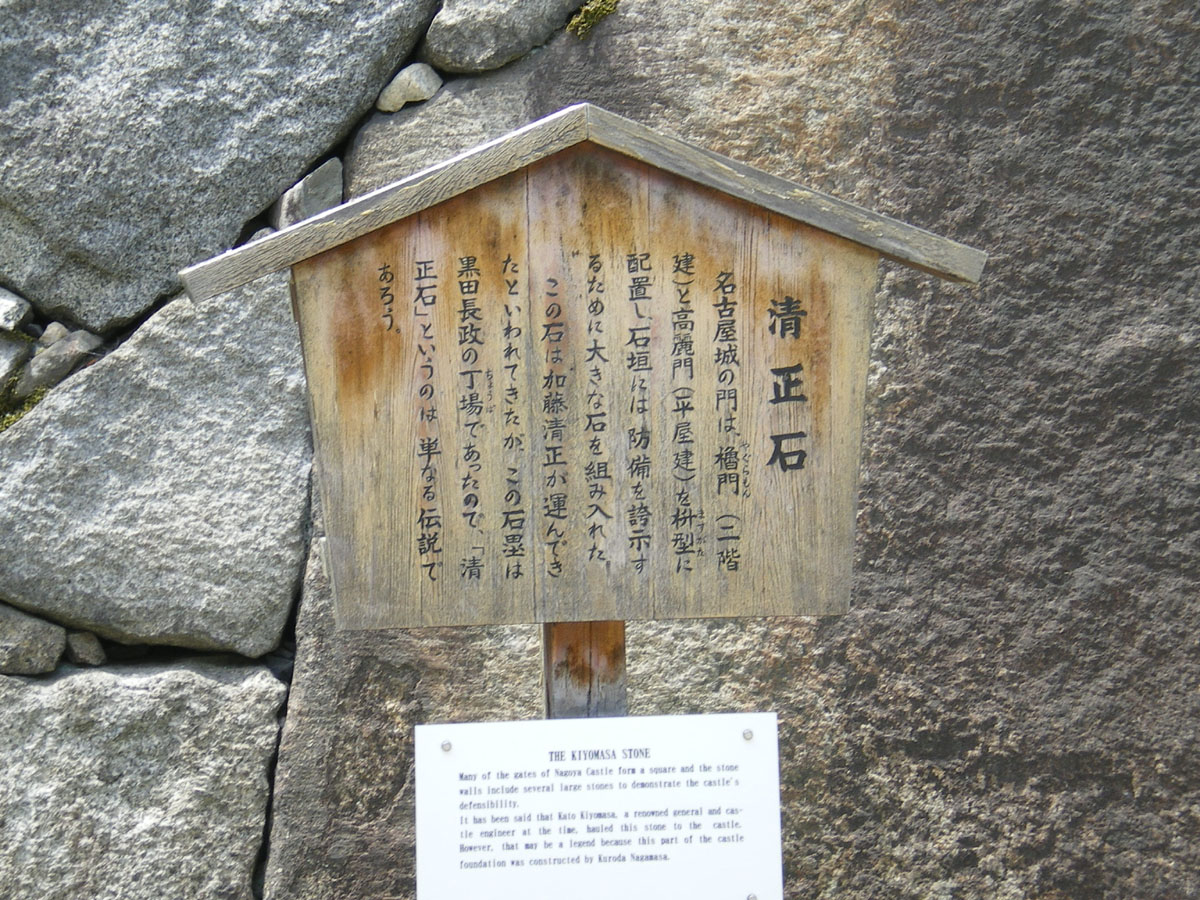 清正石
名古屋城の門は、櫓門（二階
やぐらもん
建）と高麗門（平屋建）を枡型に
ますがた
配置し、石垣には防備を誇示す
るために大きな石を組み入れた。
この石は加藤清正が運んでき
たといわれてきたが、この石塁は
黒田長政の丁場であったので、「清
ちょうば
正石」というのは単なる伝説で
あろう。
THE KIYOMASA STONE
Many of the gates of Nagoya Castle form a square and the stone
walls include several large stones to demonstrate the castle's
defensibility.
It has been said that Kato Kiyomasa, a renowned general and cas-
tle engineer at the time, hauled this stone to the castle.
However, that may be a legend because this part of the castle
foundation was constructed by Kuroda Nagamasa.